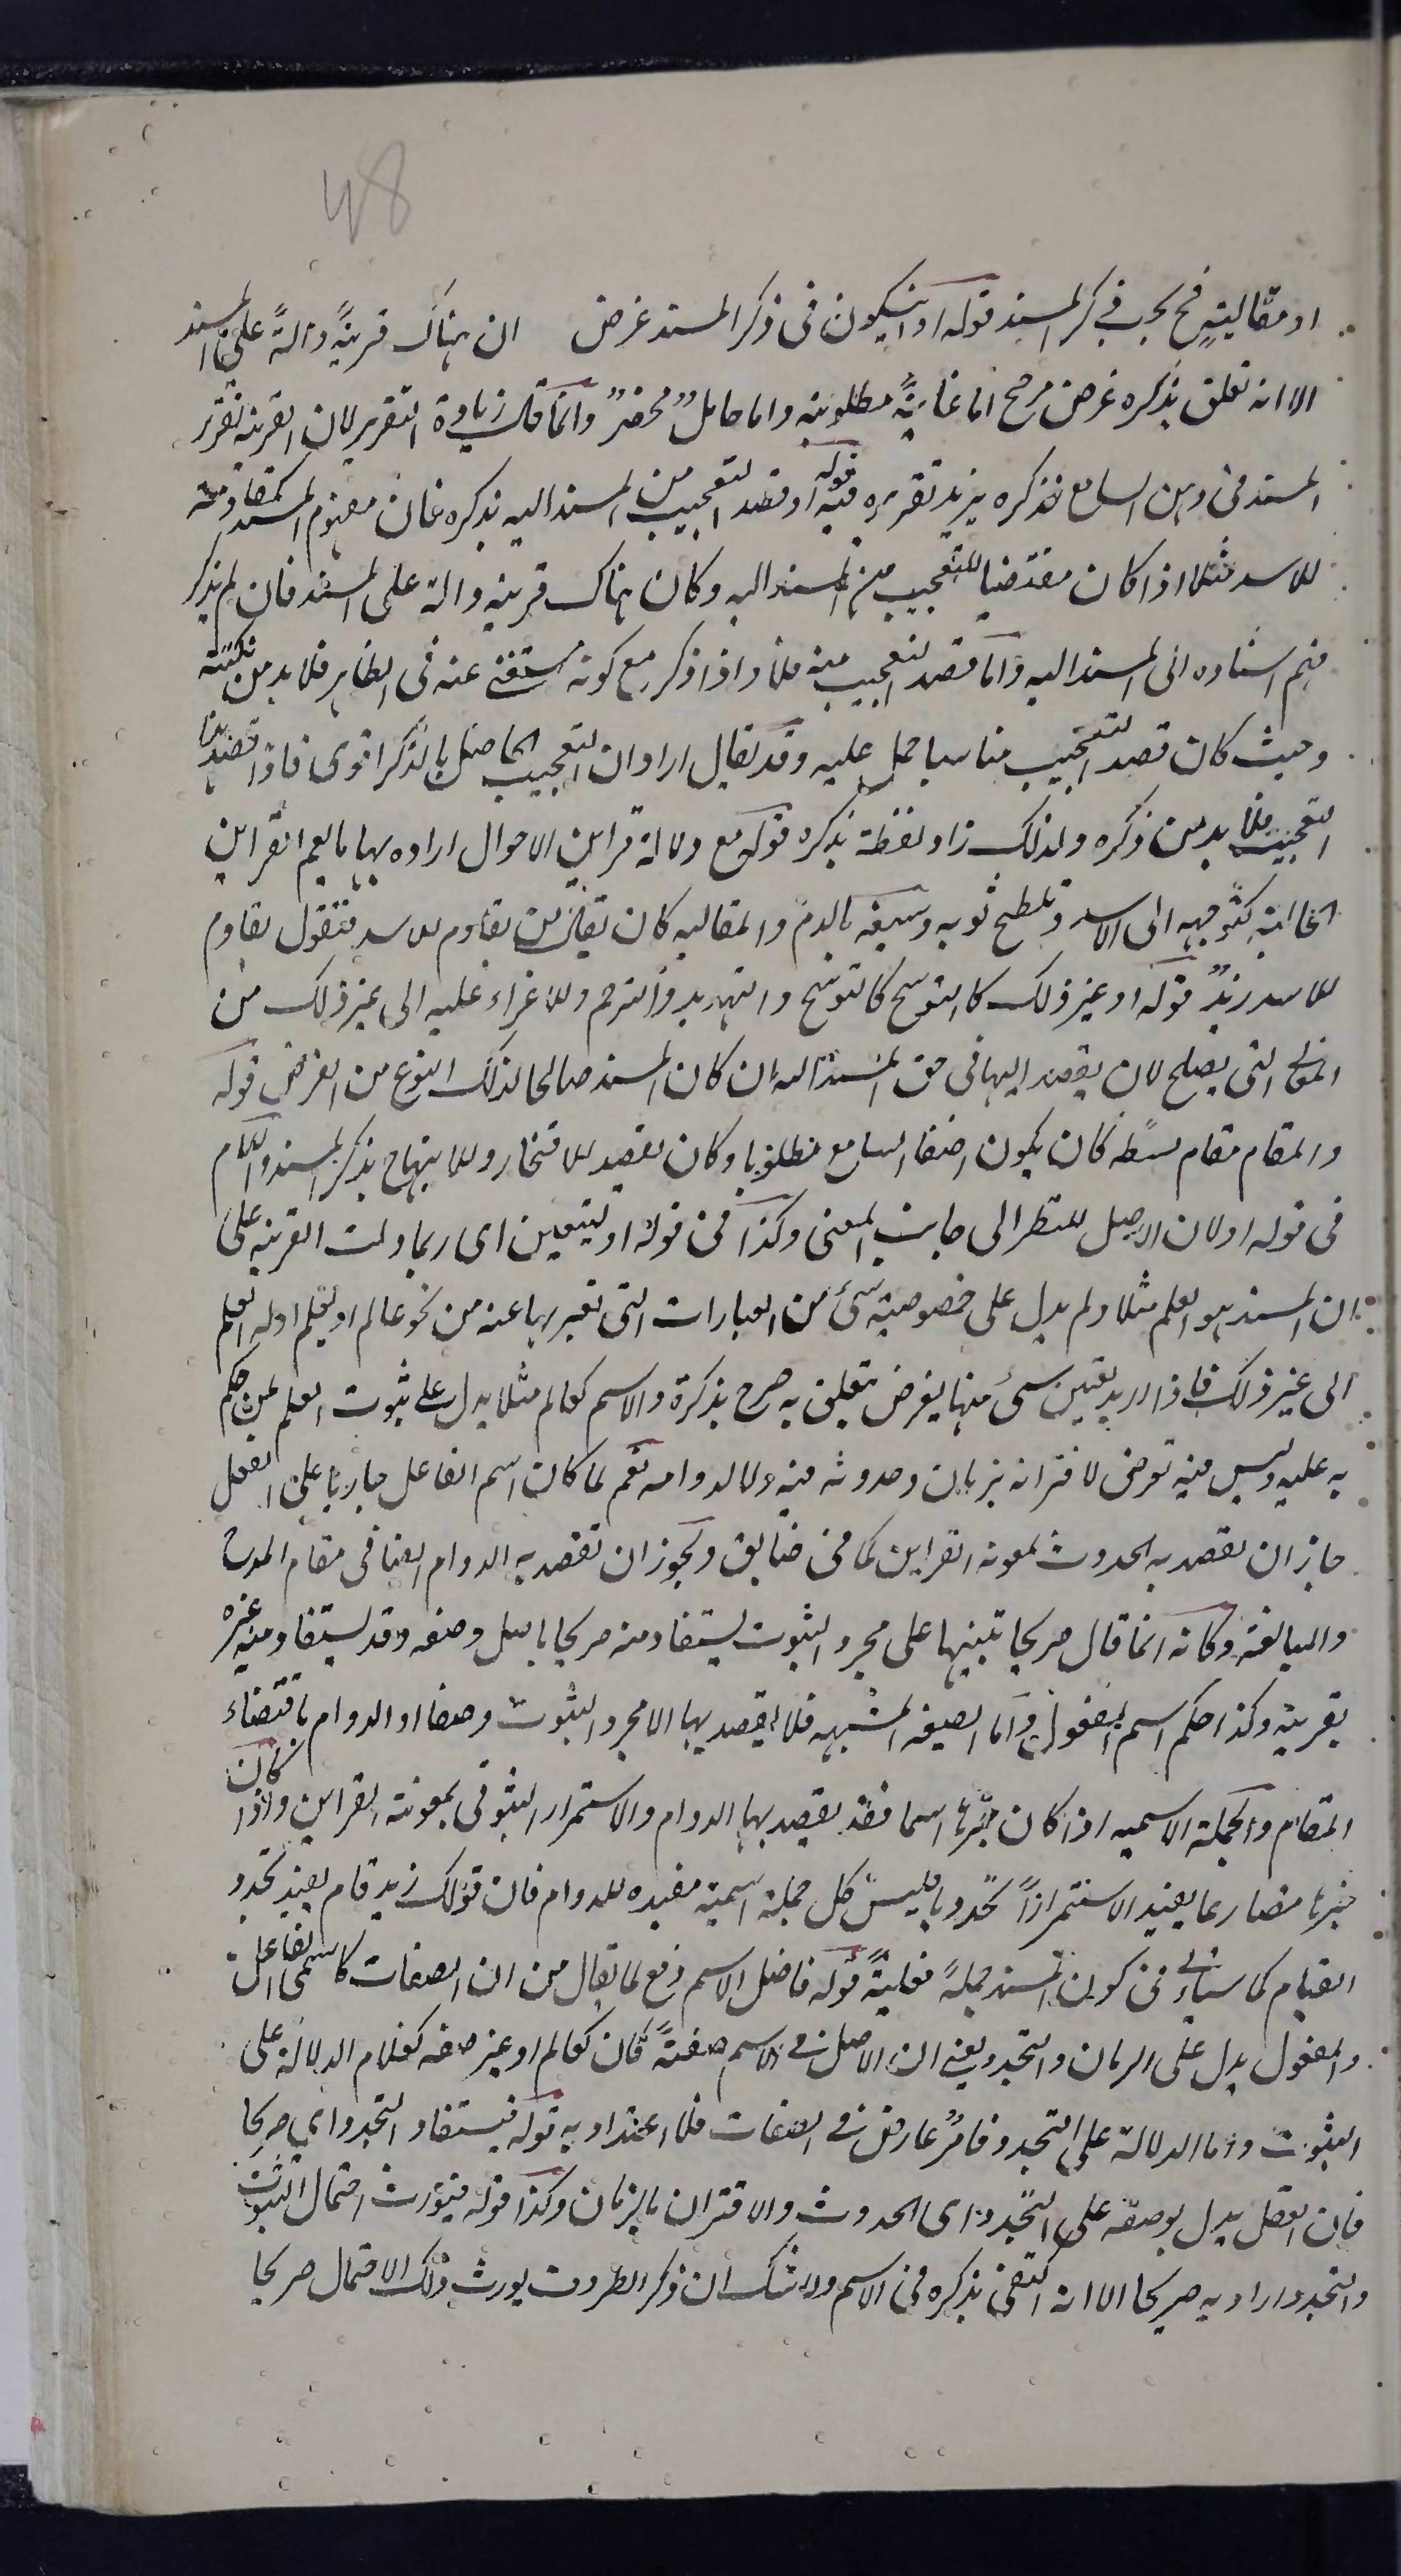 48
او مقالية فح يجب ذكر المسند قوله او ان يكون في ذكر المسند غرض ان هناك قرينةً دالةً على المسند
الا انه تعلق بذكره غرض مرجح اما غايةً مطلوبية واما حامل محضر وانما قال زيادة التقرير لان القرينة تقرر
المسند في ذهن السامع فذكره يزيد تقريره فيه قوله او قصد التعجيب من المسند اليه بذكره فان مفهوم المسند كمقاومته
للاسد مثلا اذا كان مقتضيا للتعجيب من المسند اليه وكان هناك قرينة دالة على المسند فان لم يذكر
فهم اسناده الى المسند اليه واما قصد التعجيب منه فلا واذا ذكر مع كونه مستغنى عنه في الظاهر فلا بد من نكتة
وحيث كان قصد التعجيب مناسبا حمل عليه وقد يقال اراد ان التعجيب الحاصل بالذكر اقوى فاذا قصد هذا
التعجيب فلا بد من ذكره ولذلك زاد لفظة بذكره قوله مع دلالة قراين الاحوال اراده بها ما يعم القراين
الحالية كتوجهه الى الاسد وتلطخ ثوبه وسيفه بالدم والمقالية كان يقال من يقاوم للاسد فتقول يقاوم
للاسد زيدٌ قوله او غير ذلك كالتوبيخ والتهديد والترحم وللاغراء عليه الى غير ذلك من
المعاني التي يصلح لان يقصد اليها في حق المسند اليه ان كان المسند صالحا لذلك النوع من الغرض قوله
والمقام مقام بسطه كان يكون اصغاء السامع مطلوبا وكان يقصد للافتخار وللابتهاج بذكر المسند واللام
في قوله او لان الاصل للنظر الى جانب المعنى وكذا في قوله او ليتعين اى ربما دلت القرينة على
ان المسند هو العلم مثلا ولم يدل على خصوصية شئ من العبارات التي تعبر بها عنه من نحو عالم او يعلم او له العلم
الى غير ذلك فاذا اريد تعيين شئ منها لغرض يتعلق به صرح بذكره والاسم كعالم مثلا يدل على ثبوت العلم لمن حكم
به عليه وليس فيه تعرض لاقترانه بزمان وحدوثه فيه ولا لدوامه نعم لما كان اسم الفاعل جاريا على الفعل
جاز ان يقصد به الحدوث بمعونة القراين كما في ضايق ويجوز ان يقصد به الدوام ايضا في مقام المدح
والمبالغة وكانه انما قال صريحا تنبيها على مجرد الثبوت يستفاد منه صريحا باصل وضعه وقد يستفاد منه غيره
بقرينة وكذا حكم اسم المفعول واما الصيغة المشبهه فلا يقصد بها الا مجرد الثبوت وضعا او الدوام باقتضاء
المقام والجملة الاسمية اذا كان خبرها اسما فقد يقصد بها الدوام والاستمرار الثبوتى بمعونة القراين واذا كان
خبرها مضارعا يفيد الاستمرار تجدديا فليس كل جملة اسمية مفيدة للدوام فان قولك زيد قام يفيد تجدد
القيام كما سياتي في كون المسند جملةً فعليةً قوله فاصل الاسم دفع لما يقال من ان الصفات كاسمى الفاعل
والمفعول يدل على الزمان والتجدد يعني ان الاصل في الاسم صفةً كان كعالم او غير صفه كغلام الدلالة على
الثبوت واما الدلالة على التجدد فامر عارض في الصفات فلا اعتداد به قوله فيستفاد التجدد اي صريحا
فان الفعل يدل بوضعه على التجدد اى الحدوث والاقتران بالزمان وكذا قوله فيورث احتمال الثبوت
والتجدد اراد به صريحا الا انه اكتفى بذكره في الاسم ولا شك ان ذكر الظرف يورث ذلك الاحتمال صريحا